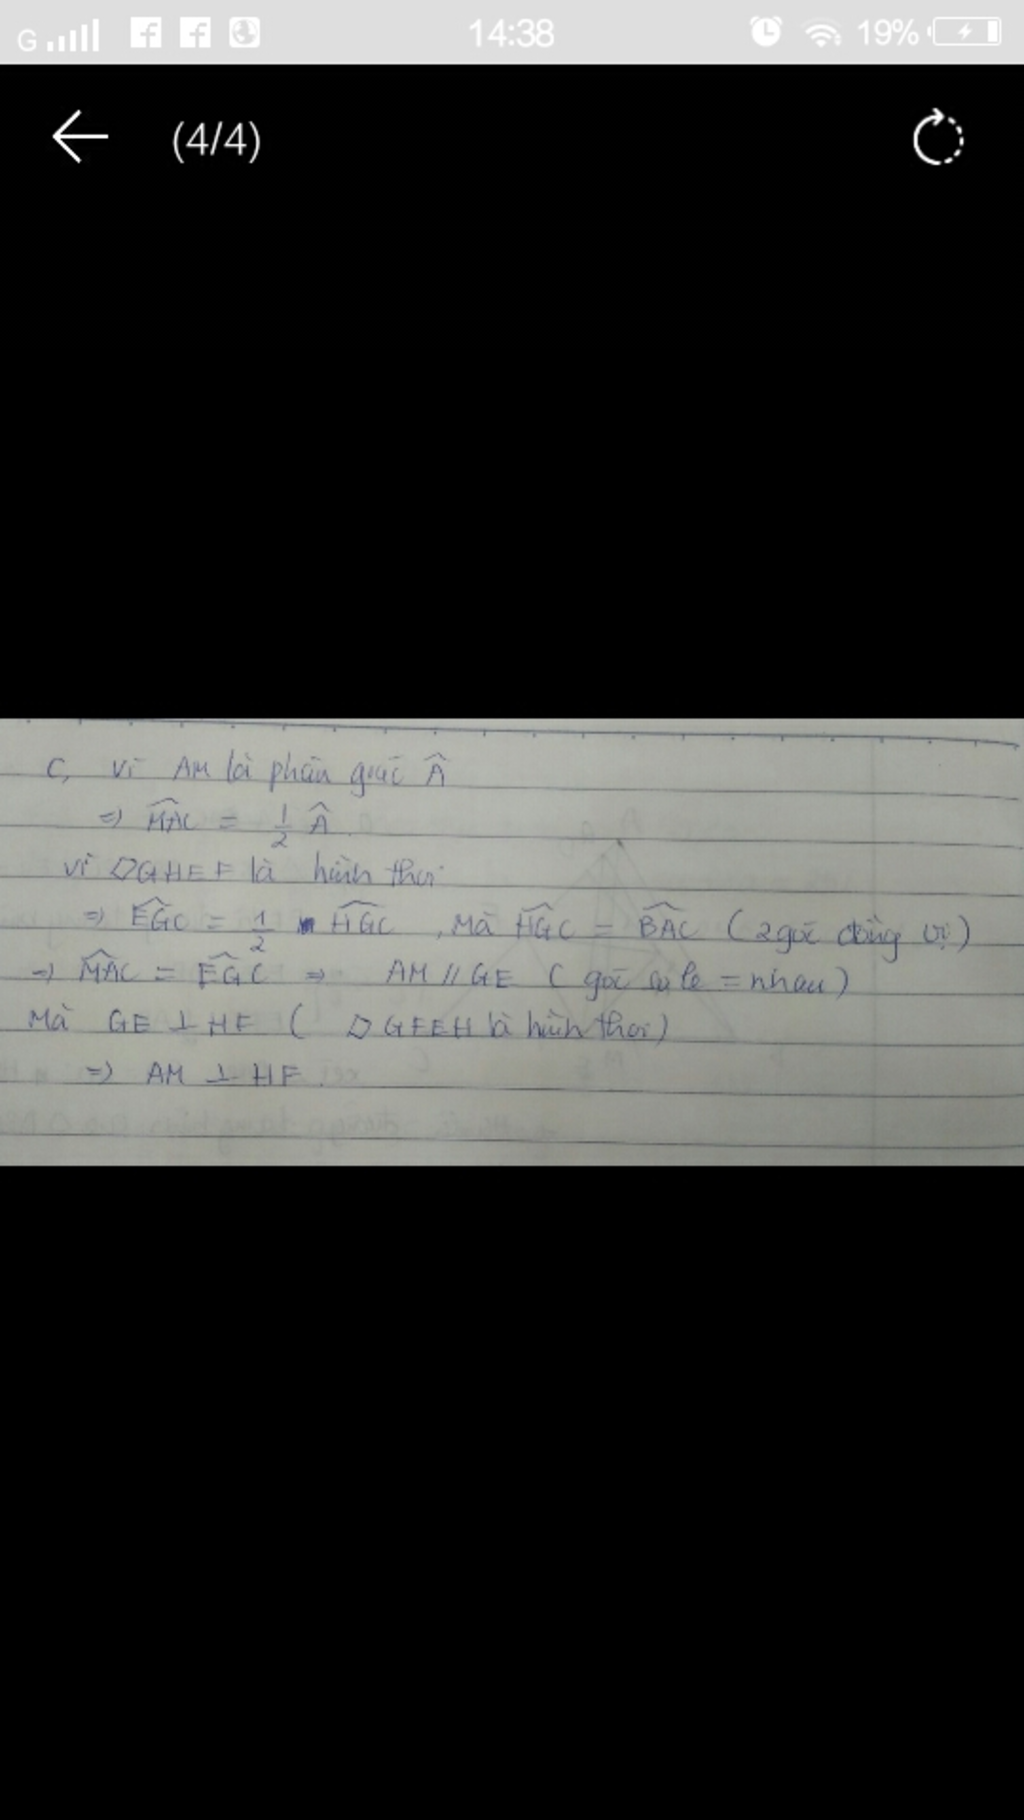 G 14:38 19%
(4/4)
C, Vì AM là phân giác Â
=> M̂AC = 1/2 Â.
Vì ▱GHEF là hình thoi
=> ÊGC = 1/2 ĤGC, Mà ĤGC = B̂AC (2 góc đồng vị)
=> M̂AC = ÊGC => AM // GE (góc so le = nhau)
Mà GE ⊥ HF (▱GFEH là hình thoi)
=> AM ⊥ HF.